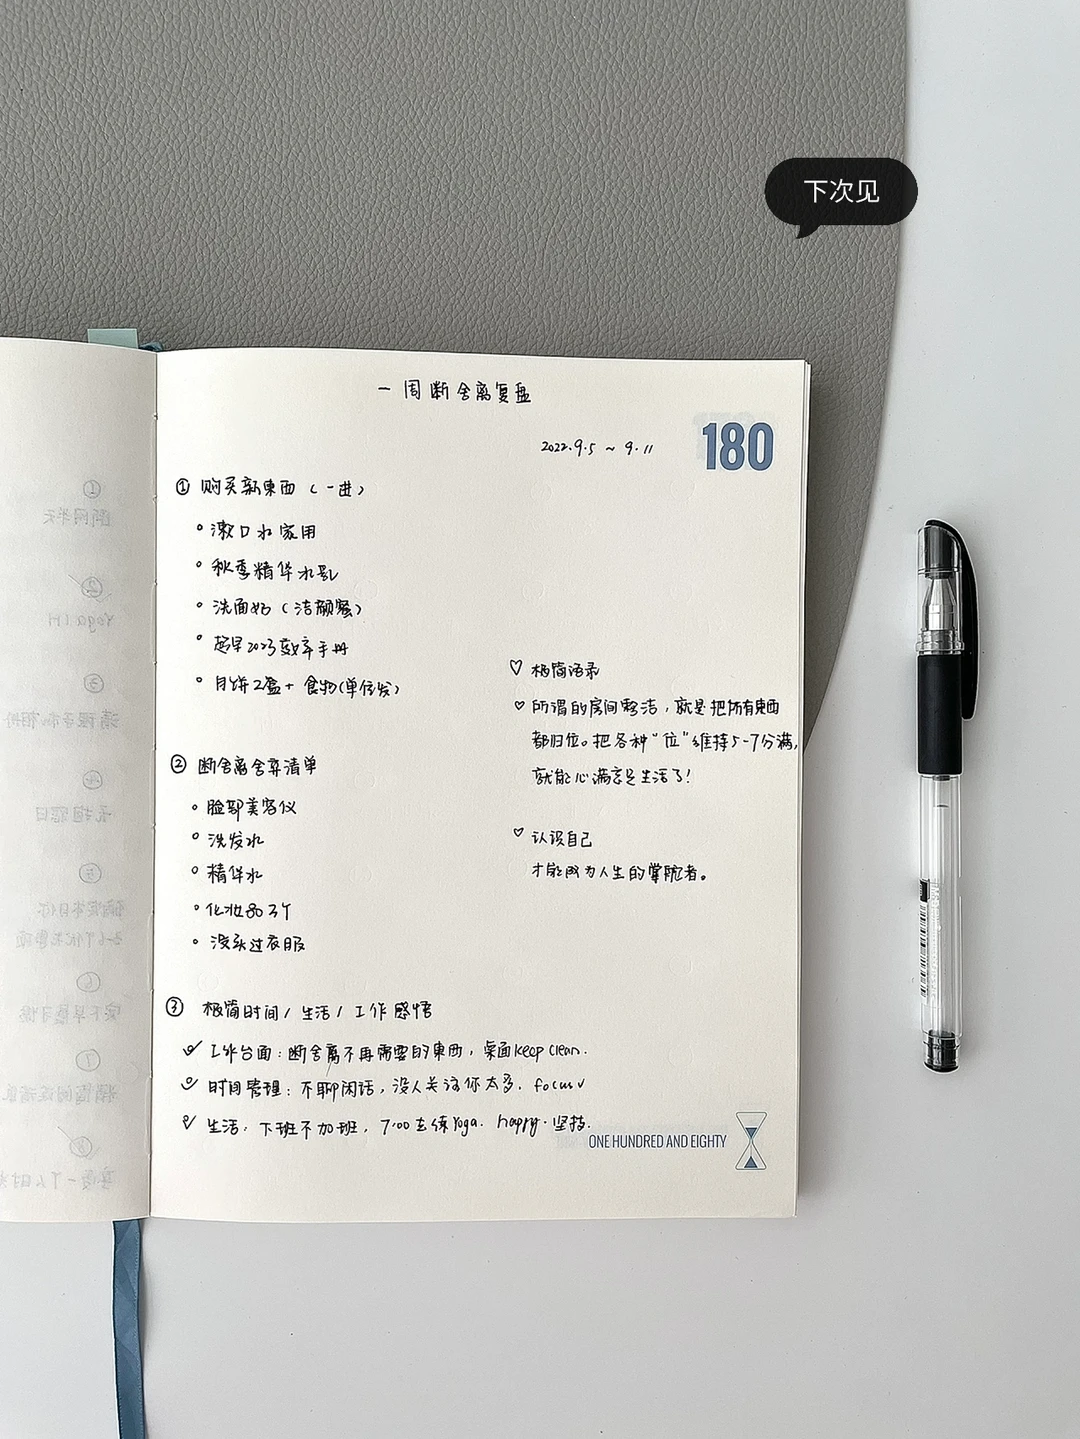 下次见
一周断舍离复盘
2022.9.5 ~ 9.11
180
① 购买新東西（一进）
漱口水家用
秋季精华水乳
洗面奶（洁颜蜜）
趁早2023效率手册
月饼2盒+食物(单位发)
② 断舍离舍弃清单
脸部美容仪
洗发水
精华水
化妆品3个
没穿过衣服
♡ 极简语录
♡ 所谓的房间整洁，就是把所有東西
都归位。把各种“位”维持5-7分满，
就能心满意足生活了！
♡ 认识自己
才能成为人生的掌舵者。
③ 极简时间/生活/工作感悟
工作台面：断舍离不再需要的東西，桌面keep clean.
时间管理：不聊闲话，没人关注你太多. focus✓
生活：下班不加班，7:00去练Yoga. happy.坚持.
ONE HUNDRED AND EIGHTY